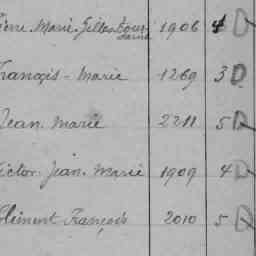 Pierre. Marie. Gilles 1906 4 D
François - Marie 1269 3 D
Jean Marie 2211 5 D
Victor. Jean. Marie 1909 4 D
Clément François 2010 5 D